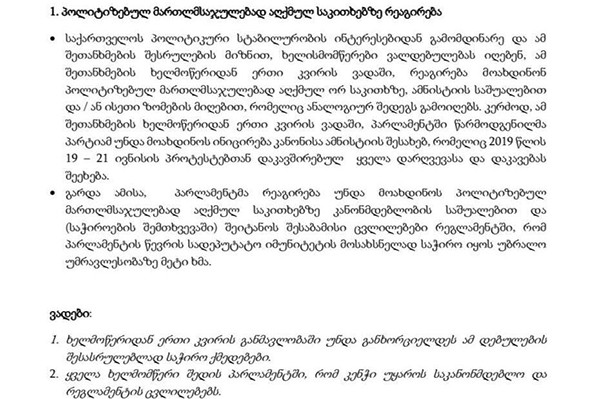 1. პოლიტიზებულ მართლმსაჯულებად აღქმულ საკითხებზე რეაგირება
• საქართველოს პოლიტიკური სტაბილურობის ინტერესებიდან გამომდინარე და ამ
შეთანხმების შესრულების მიზნით, ხელისმომწერები ვალდებულებას იღებენ, ამ
შეთანხმების ხელმოწერიდან ერთი კვირის ვადაში, რეაგირება მოახდინონ
პოლიტიზებულ მართლმსაჯულებად აღქმულ ორ საკითხზე, ამნისტიის საშუალებით
და / ან ისეთი ზომების მიღებით, რომელიც ანალოგიურ შედეგს გამოიღებს. კერძოდ, ამ
შეთანხმების ხელმოწერიდან ერთი კვირის ვადაში, პარლამენტში წარმოდგენილმა
პარტიამ უნდა მოახდინოს ინიცირება კანონისა ამნისტიის შესახებ, რომელიც 2019 წლის
19 – 21 ივნისის პროტესტებთან დაკავშირებულ ყველა დარღვევასა და დაკავებას
შეეხება.
• გარდა ამისა, პარლამენტმა რეაგირება უნდა მოახდინოს პოლიტიზებულ
მართლმსაჯულებად აღქმულ საკითხებზე კანონმდებლობის საშუალებით და
(საჭიროების შემთხვევაში) შეიტანოს შესაბამისი ცვლილებები რეგლამენტში, რომ
პარლამენტის წევრის სადეპუტატო იმუნიტეტის მოსახსნელად საჭირო იყოს უბრალო
უმრავლესობაზე მეტი ხმა.
ვადები:
1. ხელმოწერიდან ერთი კვირის განმავლობაში უნდა განხორციელდეს ამ დებულების
შესასრულებლად საჭირო ქმედებები.
2. ყველა ხელმომწერი შედის პარლამენტში, რომ კენჭი უყაროს საკანონმდებლო და
რეგლამენტის ცვლილებებს.